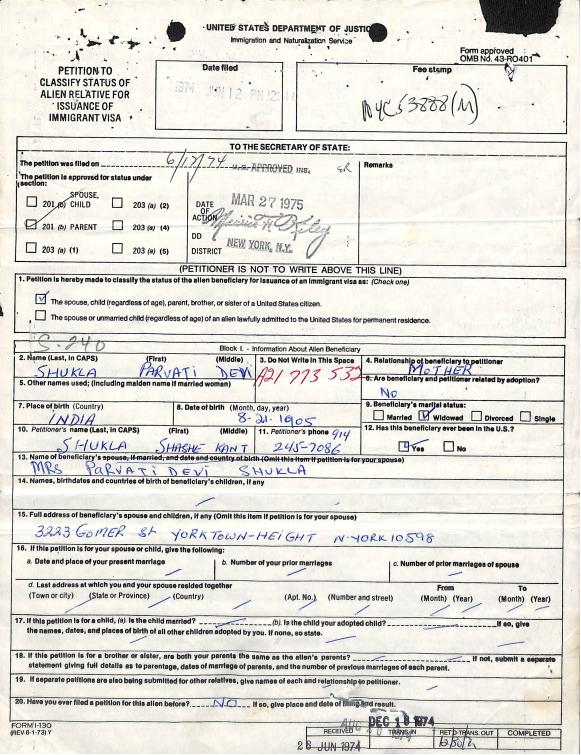 UNITED STATES DEPARTMENT OF JUSTICE
Immigration and Naturalization Service
Form approved
OMB No. 43-RO401
PETITION TO
CLASSIFY STATUS OF
ALIEN RELATIVE FOR
ISSUANCE OF
IMMIGRANT VISA
Date filed
1974 JUN 12 PM 12:
Fee stamp
NYC 53888 (M)
TO THE SECRETARY OF STATE:
The petition was filed on 6/17/74
The petition is approved for status under section:
201 (b) SPOUSE, CHILD
203 (a) (2)
201 (b) PARENT
203 (a) (4)
203 (a) (1)
203 (a) (5)
APPROVED INS.
DATE OF ACTION
MAR 27 1975
DD
DISTRICT
NEW YORK, N.Y.
Remarks
(PETITIONER IS NOT TO WRITE ABOVE THIS LINE)
1. Petition is hereby made to classify the status of the alien beneficiary for issuance of an immigrant visa as: (Check one)
The spouse, child (regardless of age), parent, brother, or sister of a United States citizen.
The spouse or unmarried child (regardless of age) of an alien lawfully admitted to the United States for permanent residence.
S-240
Block I. - Information About Alien Beneficiary
2. Name (Last, in CAPS) (First) (Middle)
SHUKLA PARVATI DEVI
3. Do Not Write in This Space
A21 773 532
4. Relationship of beneficiary to petitioner
MOTHER
5. Other names used; (including maiden name if married woman)
6. Are beneficiary and petitioner related by adoption?
NO
7. Place of birth (Country)
INDIA
8. Date of birth (Month, day, year)
8-21-1905
9. Beneficiary's marital status:
Married Widowed Divorced Single
10. Petitioner's name (Last, in CAPS) (First) (Middle)
SHUKLA SHASHE KANT
11. Petitioner's phone 914
245-7086
12. Has this beneficiary ever been in the U.S.?
Yes No
13. Name of beneficiary's spouse, if married, and date and country of birth (Omit this item if petition is for your spouse)
MRS PARVATI DEVI SHUKLA
14. Names, birthdates and countries of birth of beneficiary's children, if any
15. Full address of beneficiary's spouse and children, if any (Omit this item if petition is for your spouse)
3223 GOMER St YORKTOWN-HEIGHT N-YORK 10598
16. If this petition is for your spouse or child, give the following:
a. Date and place of your present marriage
b. Number of your prior marriages
c. Number of prior marriages of spouse
d. Last address at which you and your spouse resided together
From To
(Town or city) (State or Province) (Country) (Apt. No.) (Number and street) (Month) (Year) (Month) (Year)
17. If this petition is for a child, (a). Is the child married? (b). Is the child your adopted child? If so, give
the names, dates, and places of birth of all other children adopted by you. If none, so state.
18. If this petition is for a brother or sister, are both your parents the same as the alien's parents? If not, submit a separate
statement giving full details as to parentage, dates of marriage of parents, and the number of previous marriages of each parent.
19. If separate petitions are also being submitted for other relatives, give names of each and relationship to petitioner.
20. Have you ever filed a petition for this alien before? NO If so, give place and date of filing and result.
FORM I-130
(REV. 6-1-73) Y
AUG
DEC 18 1974
RECEIVED
TRANS. IN
RET'D-TRANS. OUT
COMPLETED
26 JUN 1974